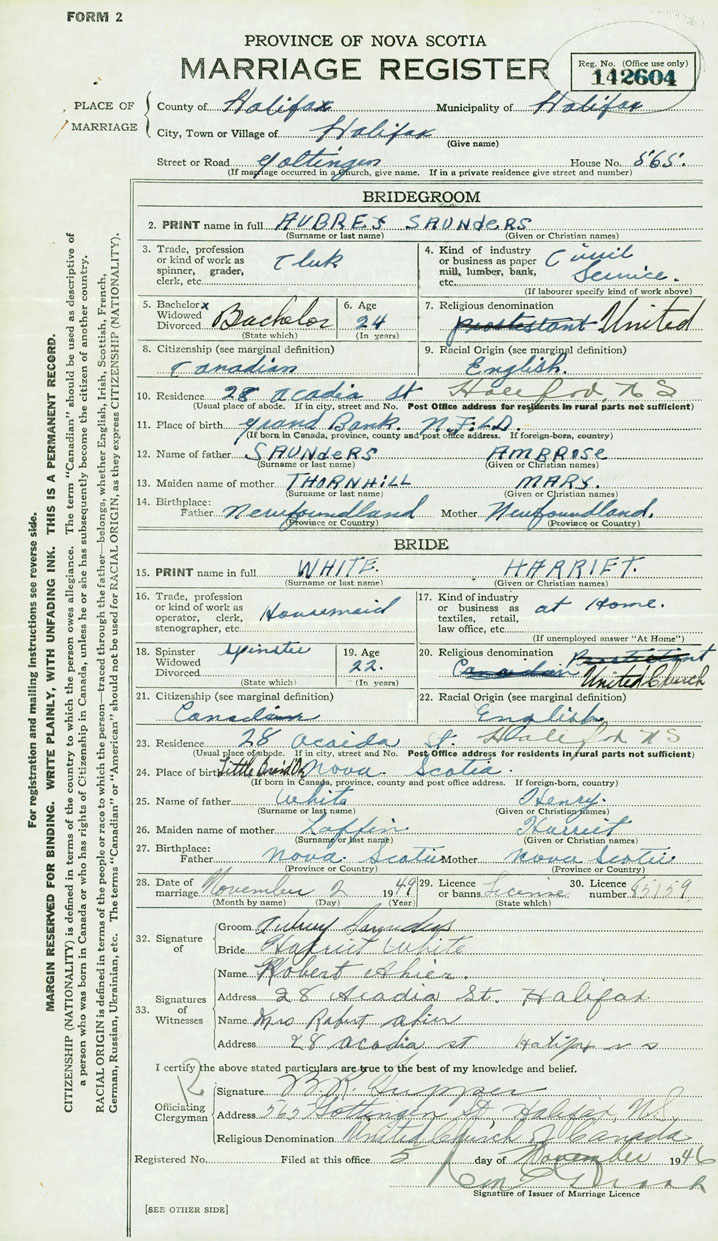 FORM 2
PROVINCE OF NOVA SCOTIA
MARRIAGE REGISTER
Reg. No. (Office use only)
142604
PLACE OF MARRIAGE
County of Halifax Municipality of Halifax
City, Town or Village of Halifax
(Give name)
Street or Road Gottingen House No. 565.
(If marriage occurred in a Church, give name. If in a private residence give street and number)
BRIDEGROOM
2. PRINT name in full AUBREY SAUNDERS
(Surname or last name) (Given or Christian names)
3. Trade, profession or kind of work as spinner, grader, clerk, etc. Clerk
4. Kind of industry or business as paper mill, lumber, bank, etc. Civil Service.
(If labourer specify kind of work above)
5. Bachelor x Widowed Divorced Bachelor
(State which)
6. Age 24
(In years)
7. Religious denomination protestant United
8. Citizenship (see marginal definition) Canadian
9. Racial Origin (see marginal definition) English.
10. Residence 28 Acadia St Halifax, N S
(Usual place of abode. If in city, street and No. Post Office address for residents in rural parts not sufficient)
11. Place of birth Grand Bank. N.F.L.D.
(If born in Canada, province, county and post office address. If foreign-born, country)
12. Name of father SAUNDERS AMBROSE
(Surname or last name) (Given or Christian names)
13. Maiden name of mother THORNHILL MARY.
(Surname or last name) (Given or Christian names)
14. Birthplace: Father Newfoundland Mother Newfoundland.
(Province or Country) (Province or Country)
BRIDE
15. PRINT name in full WHITE. HARRIET.
(Surname or last name) (Given or Christian names)
16. Trade, profession or kind of work as operator, clerk, stenographer, etc. Housemaid
17. Kind of industry or business as textiles, retail, law office, etc. at Home.
(If unemployed answer "At Home")
18. Spinster Widowed Divorced Spinster
(State which)
19. Age 22.
(In years)
20. Religious denomination Protestant
Canadian United Church
21. Citizenship (see marginal definition) Canadian
22. Racial Origin (see marginal definition) English.
23. Residence 28 Acaida St. Halifax N S
(Usual place of abode. If in city, street and No. Post Office address for residents in rural parts not sufficient)
24. Place of birth Little Nova Scotia.
(If born in Canada, province, county and post office address. If foreign-born, country)
25. Name of father White Henry.
(Surname or last name) (Given or Christian names)
26. Maiden name of mother Laffin Harriet
(Surname or last name) (Given or Christian names)
27. Birthplace: Father Nova Scotia Mother Nova Scotia
(Province or Country) (Province or Country)
28. Date of marriage November 2 1949
(Month by name) (Day) (Year)
29. Licence or banns License
(State which)
30. Licence number 85159
32. Signature of
Groom Aubrey Saunders
Bride Harriet White
33. Signatures of Witnesses
Name Robert Ahier.
Address 28 Acadia St. Halifax
Name Mrs Robert Ahier
Address 28 acadia st Halifax n s
I certify the above stated particulars are true to the best of my knowledge and belief.
12
Officiating Clergyman
Signature B.R. Tupper
Address 565 Gottingen St, Halifax, N.S.
Religious Denomination United Church of Canada
Registered No. Filed at this office 5 day of November 1946
Signature of Issuer of Marriage Licence
[SEE OTHER SIDE]
For registration and mailing instructions see reverse side.
MARGIN RESERVED FOR BINDING. WRITE PLAINLY, WITH UNFADING INK. THIS IS A PERMANENT RECORD.
CITIZENSHIP (NATIONALITY) is defined in terms of the country to which the person owes allegiance. The term "Canadian" should be used as descriptive of
a person who was born in Canada or who has rights of Citizenship in Canada, unless he or she has subsequently become the citizen of another country.
RACIAL ORIGIN is defined in terms of the people or race to which the person—traced through the father—belongs, whether English, Irish, Scottish, French,
German, Russian, Ukrainian, etc. The terms "Canadian" or "American" should not be used for RACIAL ORIGIN, as they express CITIZENSHIP (NATIONALITY).